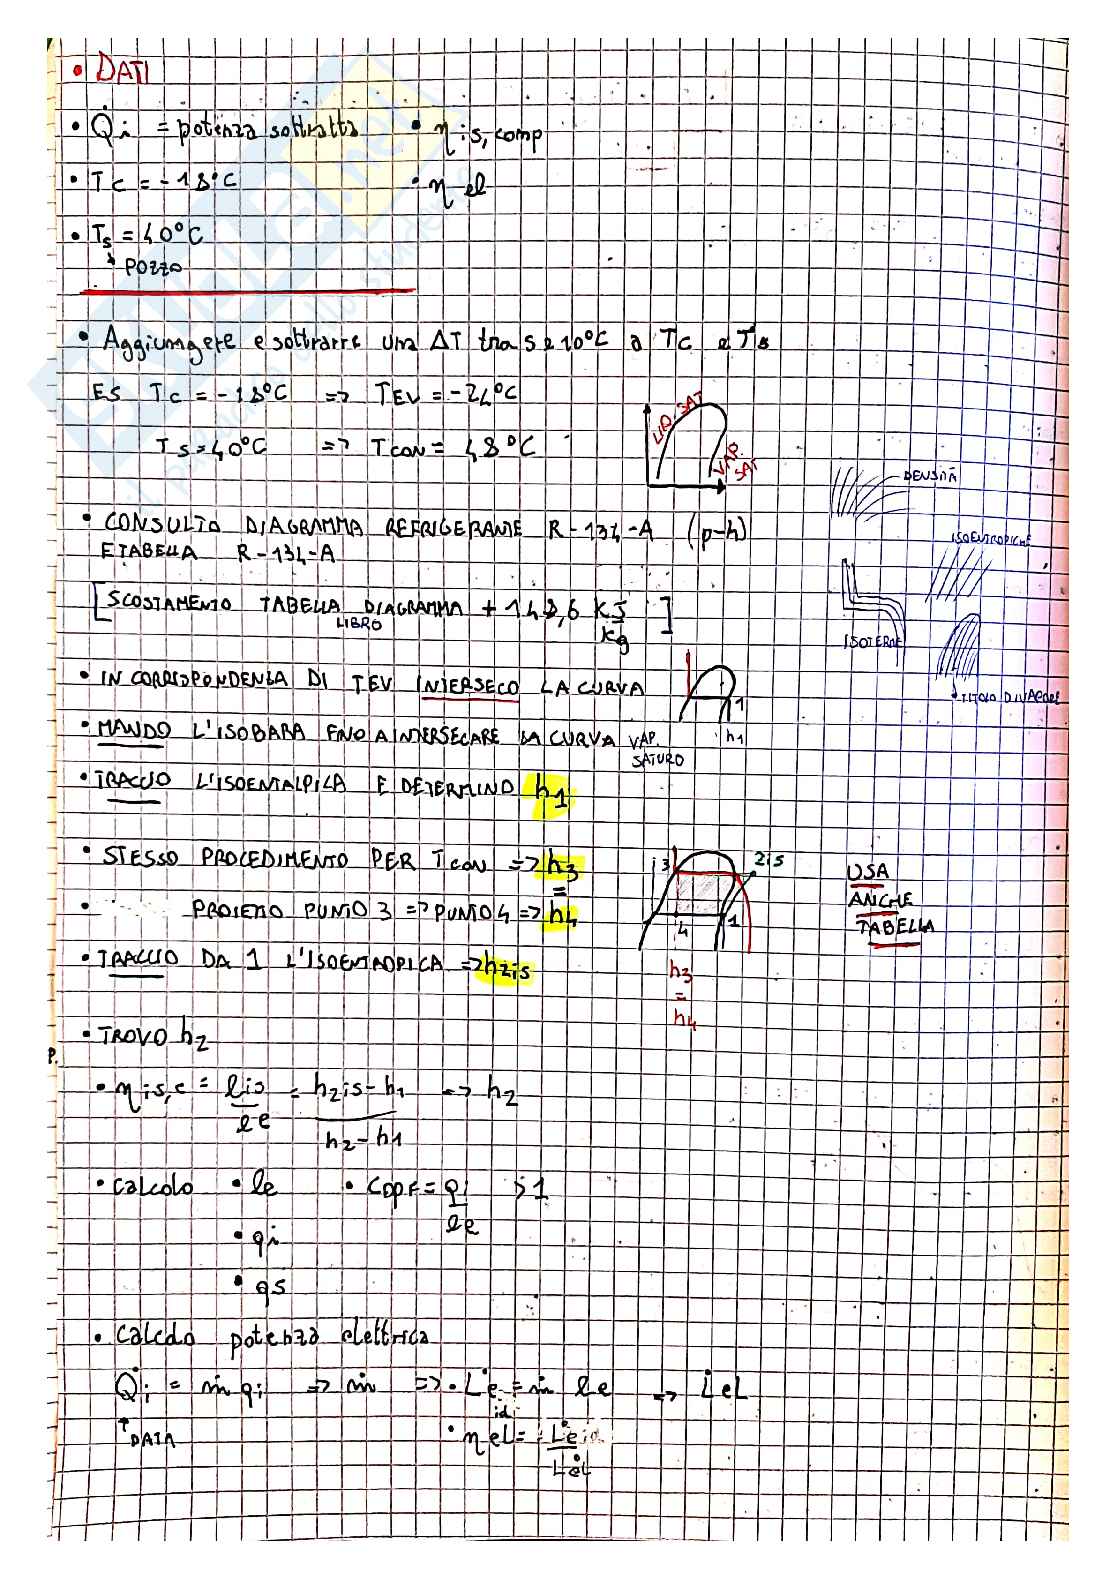 • DATI
• Q̇i = potenza sottratta • η is, comp
• Tc = -18°C • η el
• Ts = 40°C
POZZO
• Aggiungere e sottrarre una ΔT tra 5 e 10°C a Tc e Ts
ES Tc = -18°C => TEV = -24°C
Ts = 40°C => TCON = 48°C
LIQ. SAT
VAP. SAT
DENSITÀ
• CONSULTO DIAGRAMMA REFRIGERANTE R-134-A (p-h)
E TABELLA R-134-A
ISOENTROPICHE
[SCOSTAMENTO TABELLA DIAGRAMMA + 148,6 KJ/Kg]
LIBRO
ISOTERME
• TITOLO DI VAPORE
• IN CORRISPONDENZA DI TEV INTERSECO LA CURVA
1
h1
• MANDO L'ISOBARA FINO A INTERSECARE LA CURVA VAP. SATURO
• TRACCIO L'ISOENTALPICA E DETERMINO h1
• STESSO PROCEDIMENTO PER TCON => h3
=
• PROIETTO PUNTO 3 => PUNTO 4 => h4
3 2is
4 1
h3
=
h4
USA
ANCHE
TABELLA
• TRACCIO DA 1 L'ISOENTROPICA => h2is
• TROVO h2
• η is,c = lis/le = h2is - h1 / h2 - h1 => h2
• Calcolo • le • COPF = qi/le > 1
• qi
• qs
• Calcolo potenza elettrica
Q̇i = ṁ qi => ṁ => • L̇e id = ṁ le => L̇el
↑ DATA • η el = L̇e id / L̇el